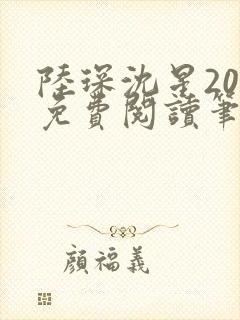 陸琛沈星20
免費閱讀筆
顏福義